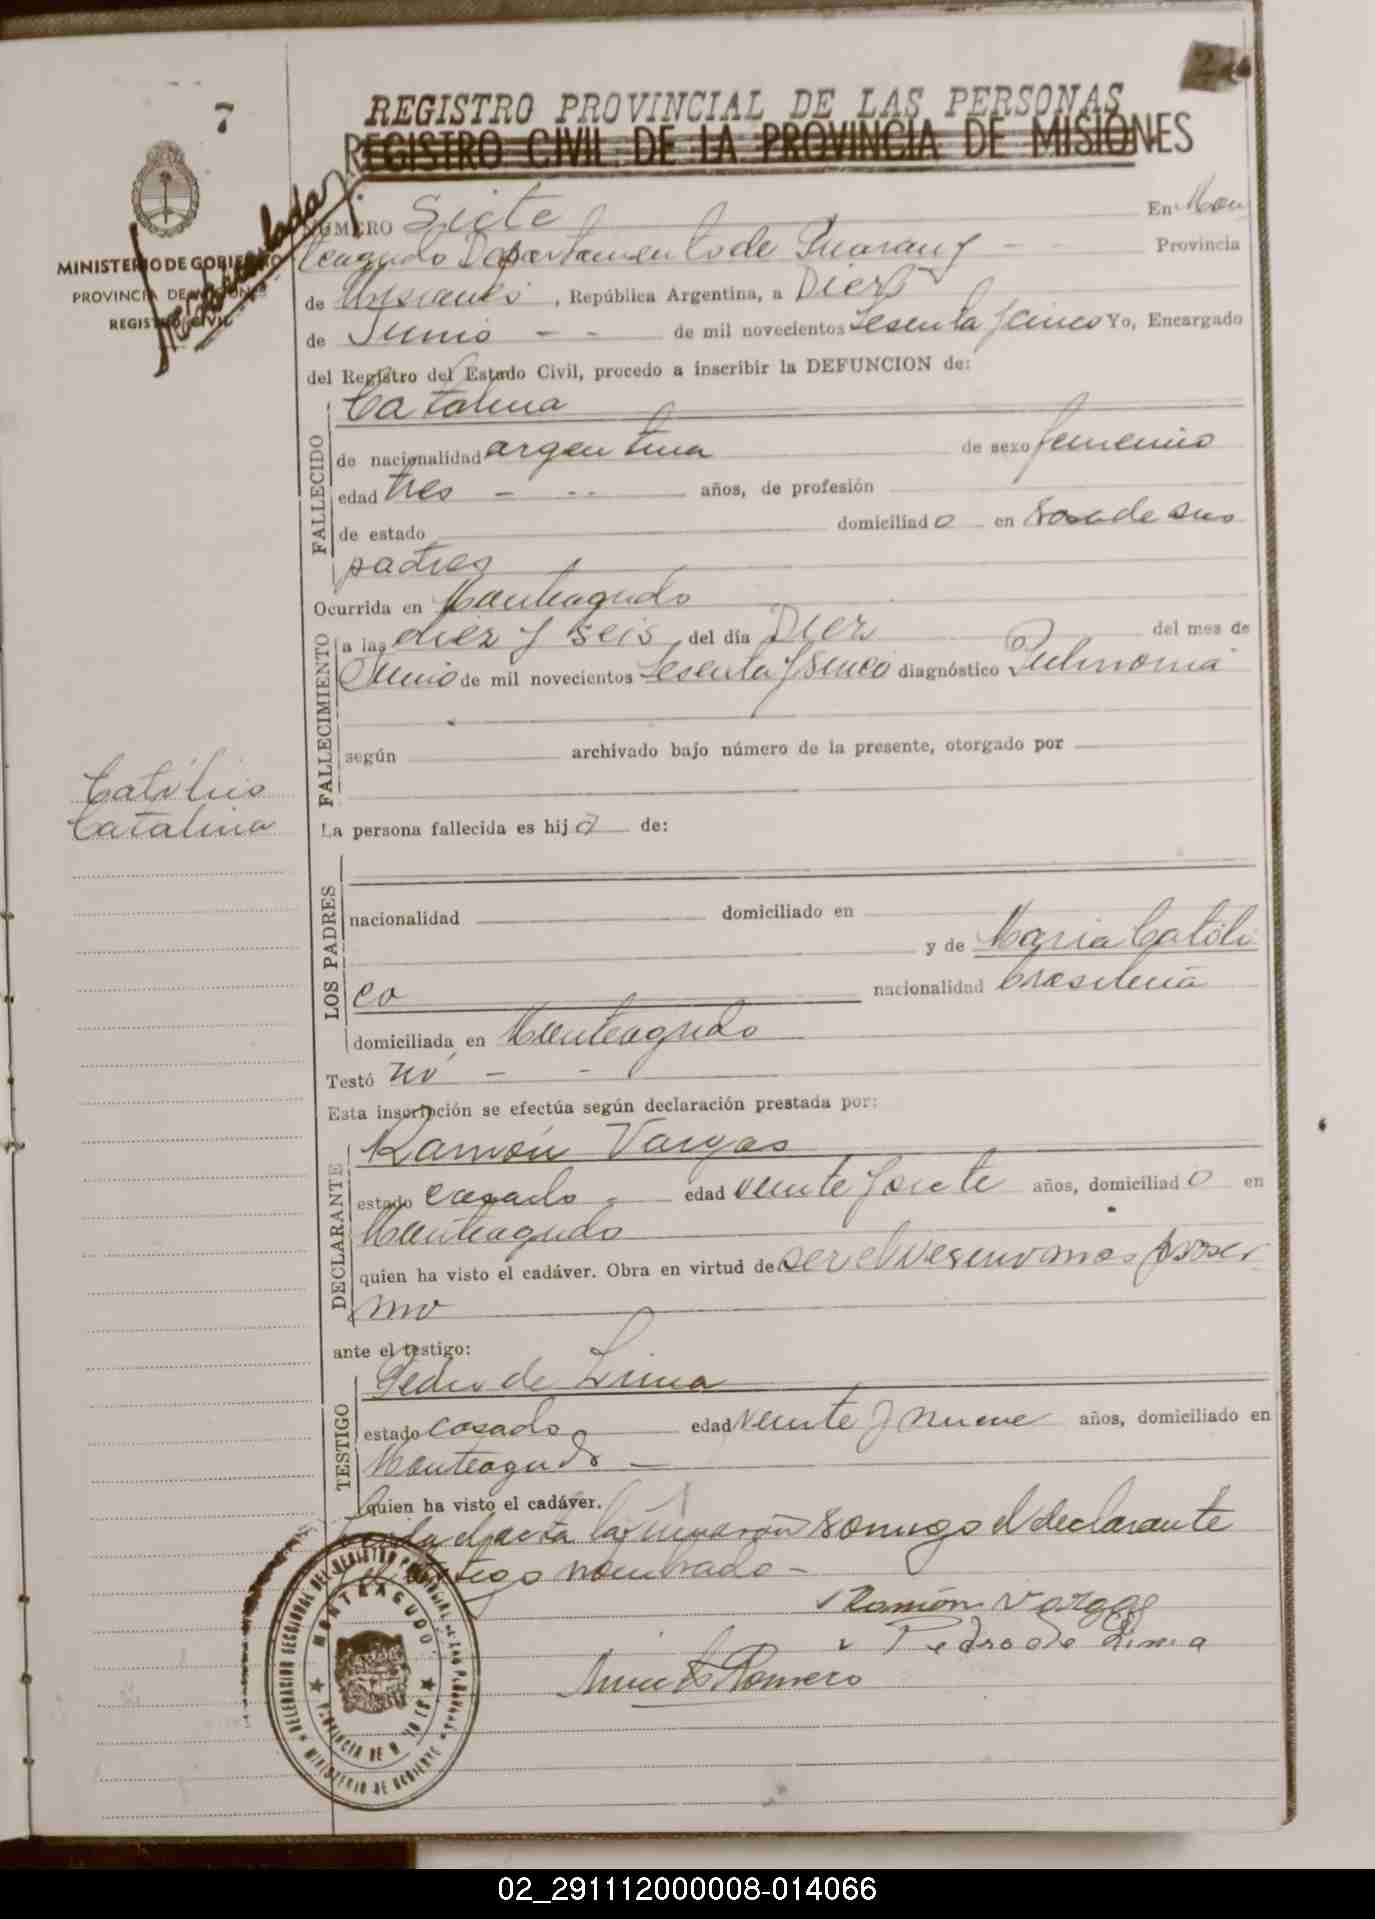 7
REGISTRO PROVINCIAL DE LAS PERSONAS
REGISTRO CIVIL DE LA PROVINCIA DE MISIONES
MINISTERIO DE GOBIERNO
PROVINCIA DE MISIONES
REGISTRO CIVIL
NÚMERO Siete En Mon
teagudo Departamento de Guarany - - Provincia
de Misiones, República Argentina, a Diez
de Junio - - de mil novecientos sesenta y cinco Yo, Encargado
del Registro del Estado Civil, procedo a inscribir la DEFUNCION de:
FALLECIDO
Catalina
de nacionalidad argentina de sexo femenino
edad tres - - - años, de profesión
de estado domiciliado en casa de sus
padres
FALLECIMIENTO
Ocurrida en Monteagudo
a las diez y seis del día Diez del mes de
Junio de mil novecientos sesenta y cinco diagnóstico Pulmonia
según archivado bajo número de la presente, otorgado por
Católico
Catalina
La persona fallecida es hija de:
LOS PADRES
nacionalidad domiciliado en
y de Maria Católi
co nacionalidad brasileña
domiciliada en Monteagudo
Testó no - -
Esta inscripción se efectúa según declaración prestada por:
DECLARANTE
Ramón Vargas
estado casado - edad veinte y siete años, domiciliado en
Monteagudo
quien ha visto el cadáver. Obra en virtud de ser el vesino mas proxi
mo
ante el testigo:
TESTIGO
Pedro de Lima
estado casado edad veinte y nueve años, domiciliado en
Monteagudo -
quien ha visto el cadáver.
Leida el acta la firmaron conmigo el declarante
y el testigo nombrado -
Ramón Vargas
Pedro de Lima
Romero
DELEGACION SECCIONAL DEL REGISTRO PROVINCIAL DE LAS PERSONAS
MONTEAGUDO
PROVINCIA DE MISIONES
MINISTERIO DE GOBIERNO
02_291112000008-014066